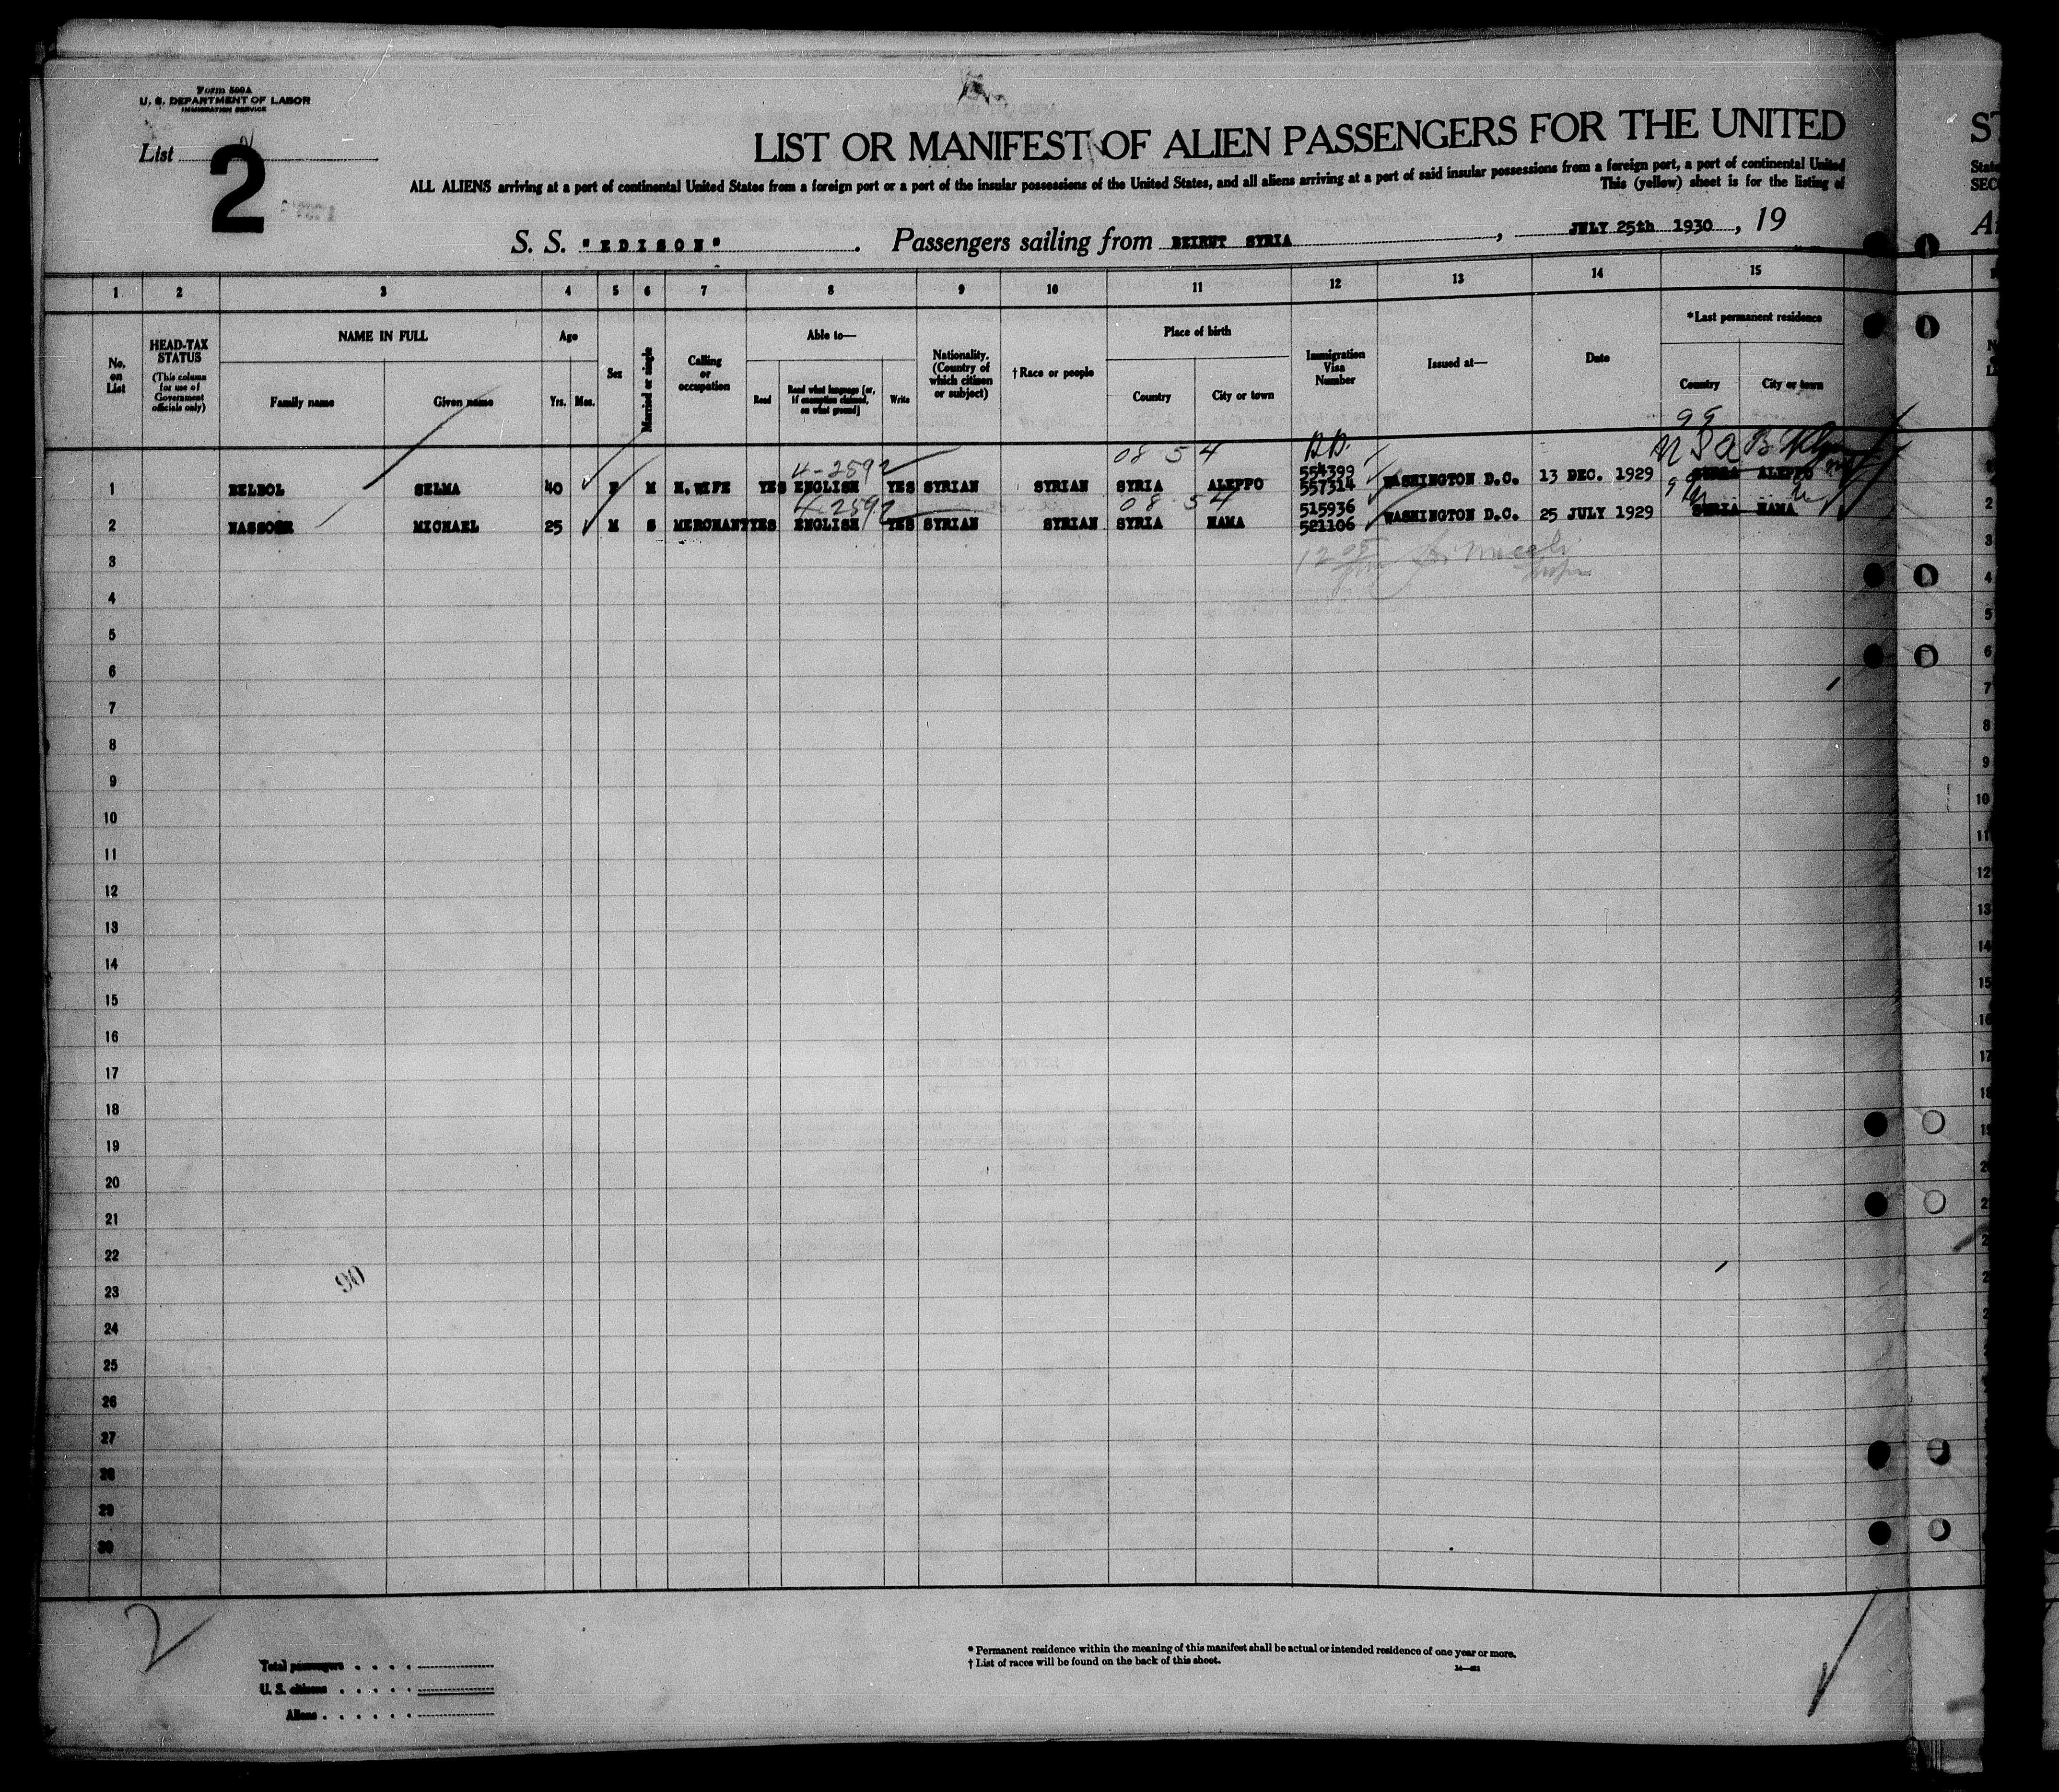 Form 500A
U. S. DEPARTMENT OF LABOR
IMMIGRATION SERVICE
List 2
2
LIST OR MANIFEST OF ALIEN PASSENGERS FOR THE UNITED
ST
ALL ALIENS arriving at a port of continental United States from a foreign port or a port of the insular possessions of the United States, and all aliens arriving at a port of said insular possessions from a foreign port, a port of continental United
State
This (yellow) sheet is for the listing of
SECO
S. S. "EDISON". Passengers sailing from BEIRUT SYRIA, JULY 25th 1930, 19
1 2 3 4 5 6 7 8 9 10 11 12 13 14 15
No. on List
HEAD-TAX STATUS (This column for use of Government officials only)
NAME IN FULL
Family name
Given name
Age
Yrs.
Mos.
Sex
Married or single
Calling or occupation
Able to—
Read
Read what language [or, if exemption claimed, on what ground]
Write
Nationality. (Country of which citizen or subject)
† Race or people
Place of birth
Country
City or town
Immigration Visa Number
Issued at—
Date
* Last permanent residence
Country
City or town
99
4-2592
08 54
1 BELBOL SELMA 40 F M H.WIFE YES ENGLISH YES SYRIAN SYRIAN SYRIA ALEPPO 554399 557314 WASHINGTON D.C. 13 DEC. 1929 SYRIA ALEPPO
4-2592
08 54
2 NASSOUR MICHAEL 25 M S MERCHANT YES ENGLISH YES SYRIAN SYRIAN SYRIA HAMA 515936 521106 WASHINGTON D.C. 25 JULY 1929 SYRIA HAMA
3
4
5
6
7
8
9
10
11
12
13
14
15
16
17
18
19
20
21
22
90
23
24
25
26
27
28
29
30
2
Total passengers
U. S. citizens
Aliens
* Permanent residence within the meaning of this manifest shall be actual or intended residence of one year or more.
† List of races will be found on the back of this sheet.